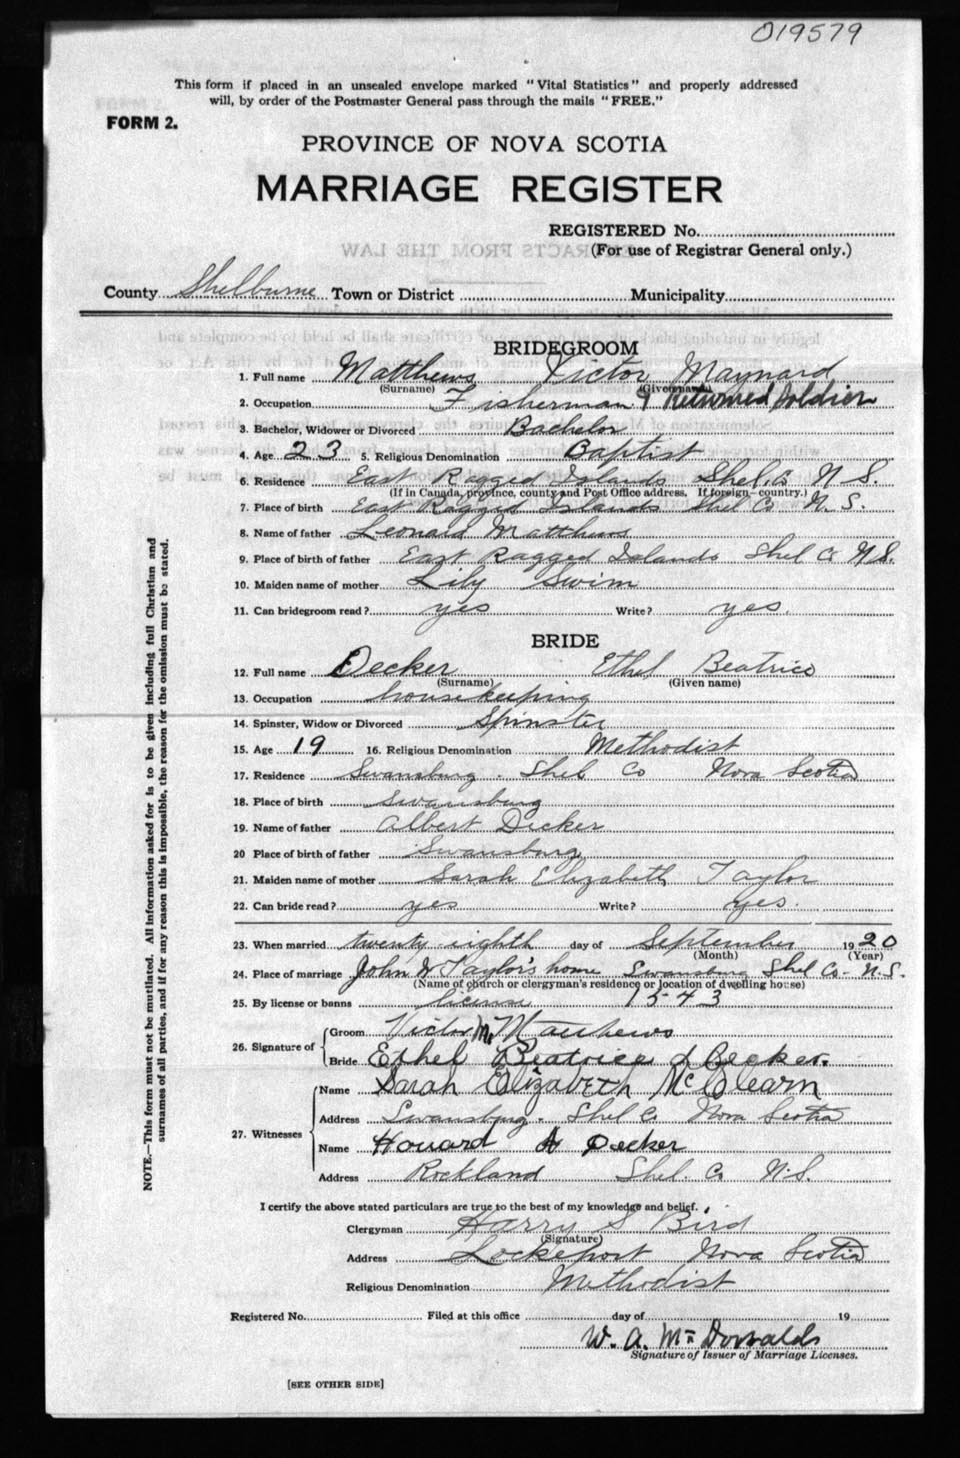 019579
This form if placed in an unsealed envelope marked "Vital Statistics" and properly addressed
will, by order of the Postmaster General pass through the mails "FREE."
FORM 2.
PROVINCE OF NOVA SCOTIA
MARRIAGE REGISTER
REGISTERED No.
(For use of Registrar General only.)
County Shelburne Town or District Municipality
BRIDEGROOM
1. Full name Matthews Victor Maynard
(Surname) (Given name)
2. Occupation Fisherman & Returned Soldier
3. Bachelor, Widower or Divorced Bachelor
4. Age 23 5. Religious Denomination Baptist
6. Residence East Ragged Islands Shel. Co N S.
(If in Canada, province, county and Post Office address. If foreign—country.)
7. Place of birth East Ragged Islands Shel Co N. S.
8. Name of father Leonard Matthews
9. Place of birth of father East Ragged Islands Shel Co N.S.
10. Maiden name of mother Lily Swim
11. Can bridegroom read? yes Write? yes.
BRIDE
12. Full name Decker Ethel Beatrice
(Surname) (Given name)
13. Occupation housekeeping
14. Spinster, Widow or Divorced Spinster
15. Age 19 16. Religious Denomination Methodist
17. Residence Swansburg. Shel Co Nova Scotia
18. Place of birth Swansburg
19. Name of father Albert Decker
20 Place of birth of father Swansburg
21. Maiden name of mother Sarah Elizabeth Taylor
22. Can bride read? yes Write? yes.
23. When married twenty eighth day of September 1920
(Month) (Year)
24. Place of marriage John W Taylor's home Swansburg Shel Co- N.S.
(Name of church or clergyman's residence or location of dwelling house)
25. By license or banns license 1543
26. Signature of Groom Victor M. Matthews
Bride Ethel Beatrice Decker.
27. Witnesses Name Sarah Elizabeth McClearn
Address Swansburg. Shel Co Nova Scotia
Name Howard A Decker
Address Rockland Shel. Co N.S.
I certify the above stated particulars are true to the best of my knowledge and belief.
Clergyman Harry S Bird
(Signature)
Address Lockeport Nova Scotia
Religious Denomination Methodist
Registered No. Filed at this office day of 19
W. A. McDonald
Signature of Issuer of Marriage Licenses.
[SEE OTHER SIDE]
NOTE.—This form must not be mutilated. All information asked for is to be given including full Christian and
surnames of all parties, and if for any reason this is impossible, the reason for the omission must be stated.